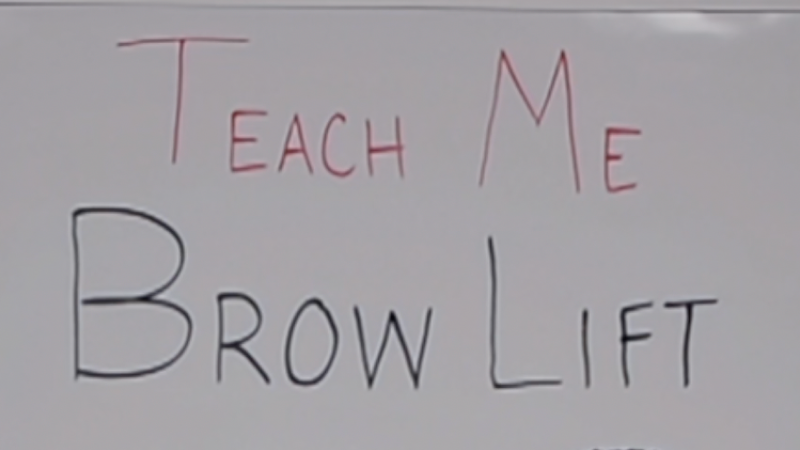 TEACH ME
BROW LIFT